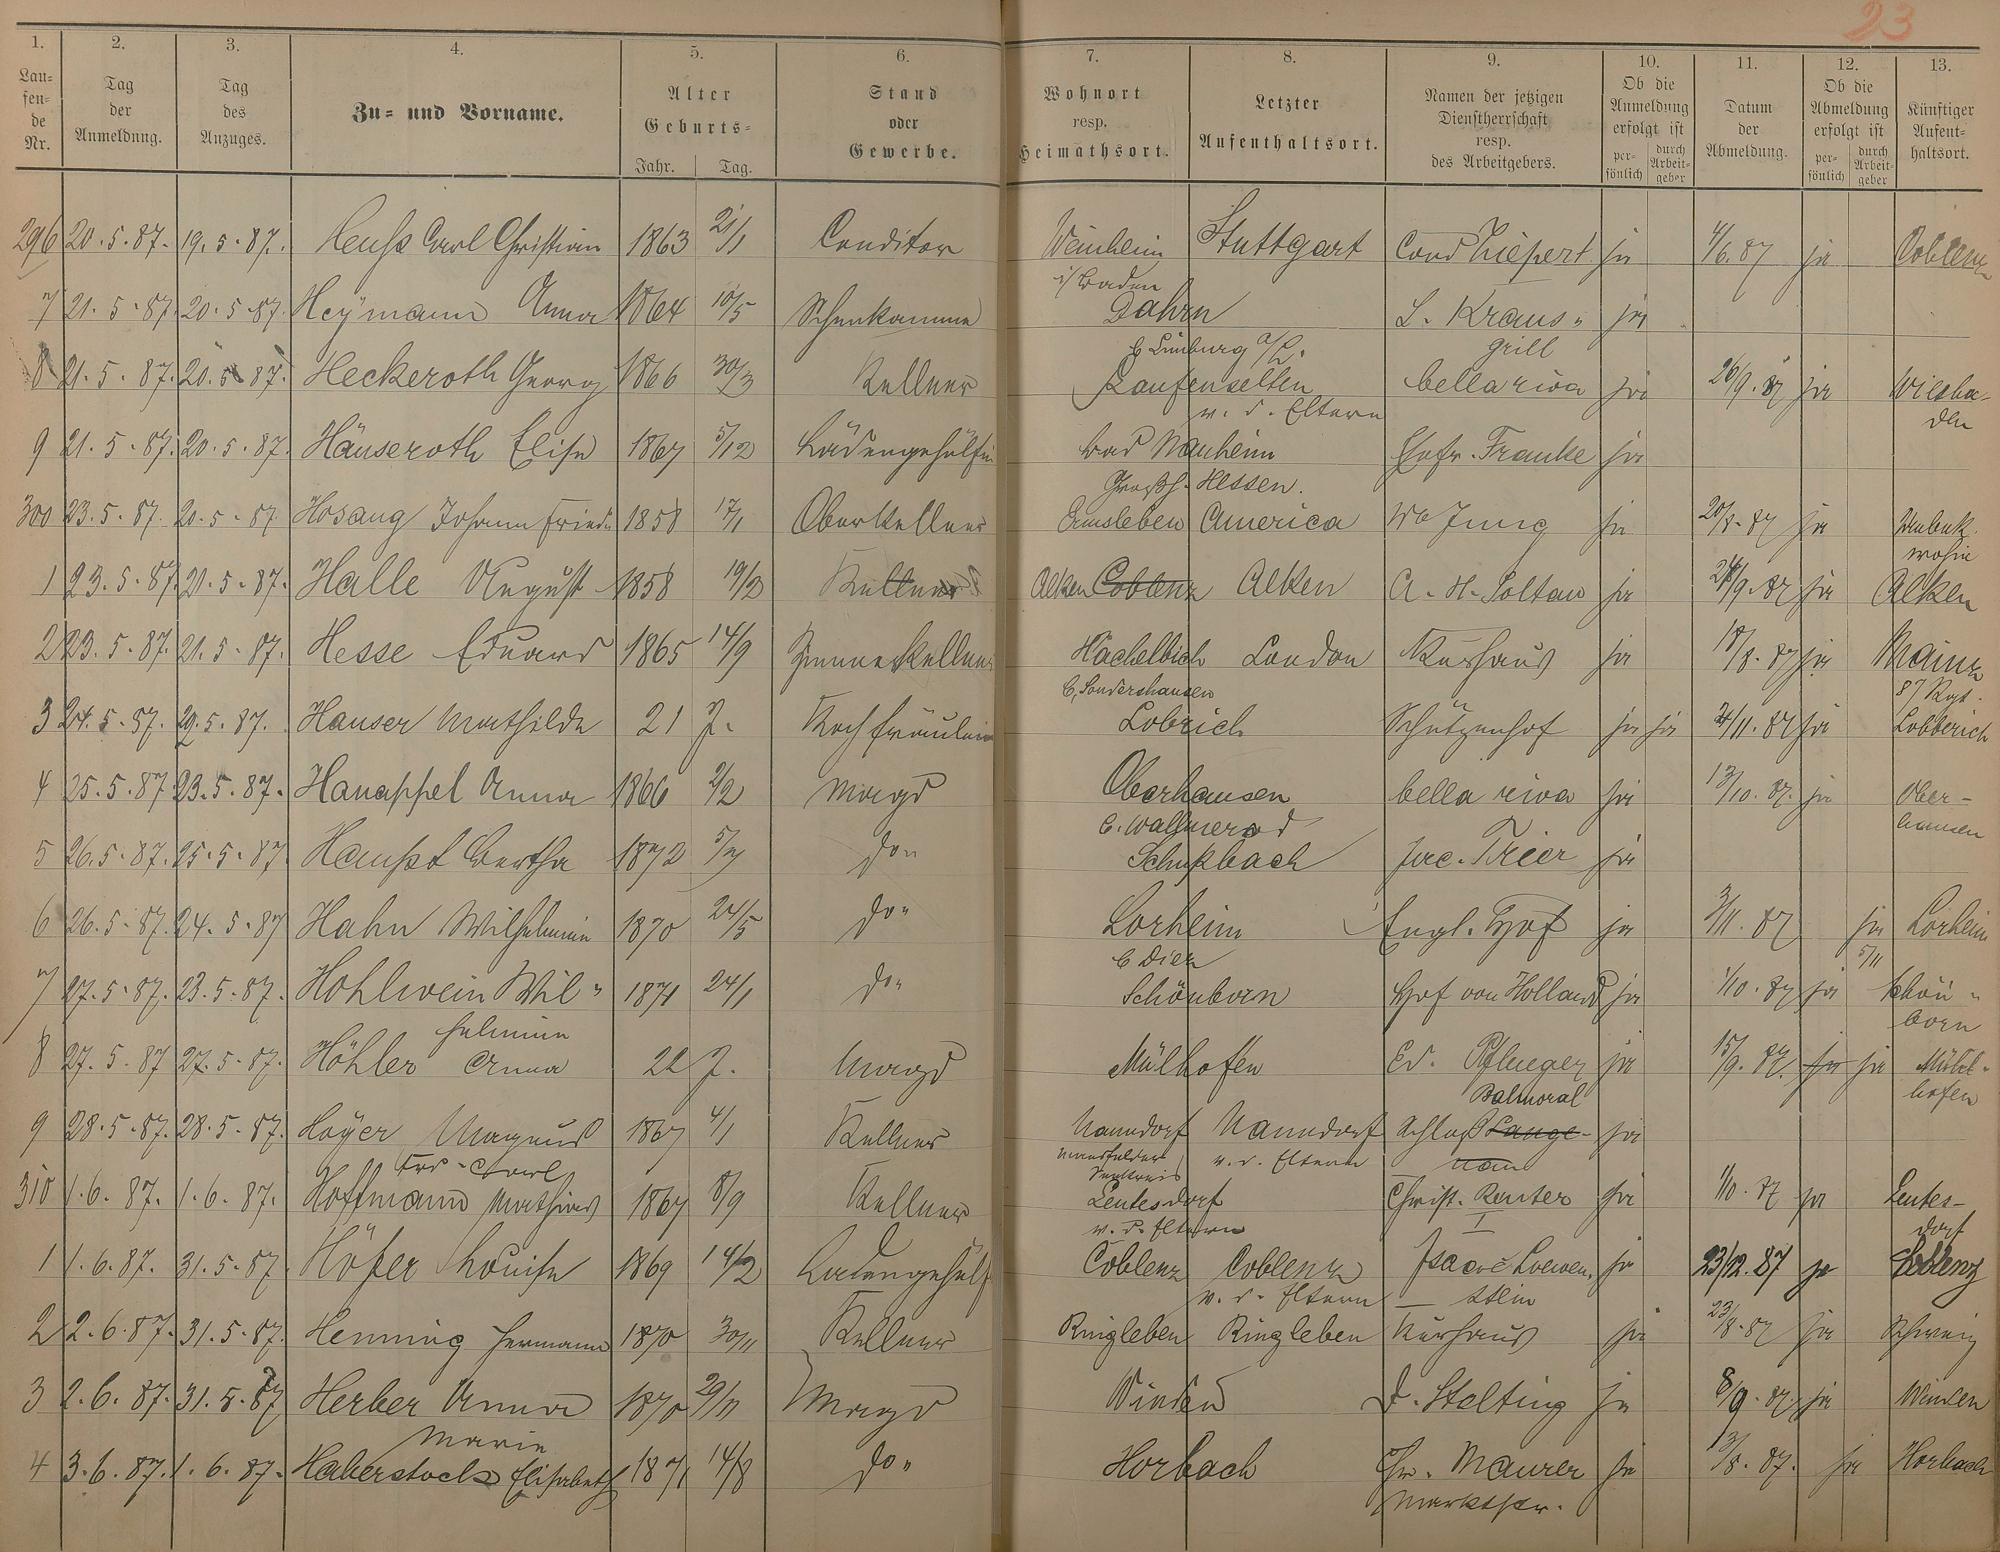 23
1. 2. 3. 4. 5. 6. 7. 8. 9. 10. 11. 12. 13.
Lau=fen=de Nr. Tag der Anmeldung. Tag des Anzuges. Zu= und Vorname. Alter Geburts= Jahr. Tag. Stand oder Gewerbe. Wohnort resp. Heimathsort. Letzter Aufenthaltsort. Namen der jetzigen Dienstherrschaft resp. des Arbeitgebers. Ob die Anmeldung erfolgt ist per=sönlich durch Arbeit=geber Datum der Abmeldung. Ob die Abmeldung erfolgt ist per=sönlich durch Arbeit=geber Künftiger Aufent=haltsort.
296 20.5.87. 19.5.87. Heuß Carl Christian 1863 21/1 Conditor Weinheim Stuttgart Cond ja 4/6.87 ja Coblenz
i/Baden
7 21.5.87. 20.5.87. Heymann Anna 1864 10/5 Dahrn L. Kraus= ja
b Limburg a/L. grill
8 21.5.87. 20.5.87. Heckeroth Georg 1866 30/3 Kellner Laufenselten bella riva ja 26/9.87 ja Wiesba=
v. d. Eltern den
9 21.5.87. 20.5.87. Häuseroth Elise 1867 5/12 Ladengehülfin Bad Nauheim Franke ja
Großh. Hessen.
300 23.5.87. 20.5.87 Hosang Johann Friedr 1858 17/1 Oberkellner Ermsleben America Wb Jung ja 20/8.87 ja Unbek.
wohin
1 23.5.87. 21.5.87. Halle August 1858 19/2 Kellner Alken Coblenz Alken A. H. Soltau ja 28/9.87 ja Alken
2 23.5.87. 21.5.87. Hesse Eduard 1865 14/9 Zimmerkellner Hachelbich London Kurhaus ja 18/8.87 ja Mainz
b, Sondershausen 87 Rgt.
3 24.5.87. 22.5.87. Hauser Mathilde 21 J. Kochfräulein Lobrich Schützenhof ja ja 24/11.87 ja Lobberich
4 25.5.87 23.5.87. Hanappel Anna 1866 2/2 Magd Oberhausen bella riva ja 13/10.87. ja Ober=
b. Wallmerod hausen
5 26.5.87. 25.5.87 Haupt Bertha 1872 5/7 do" Schupbach Jac. Trier ja
6 26.5.87. 24.5.87 Hahn Wilhelmine 1870 24/5 do" Lorheim Engl. Hof ja 3/11.87 ja Lorheim
b Diez 5/11
7 27.5.87. 23.5.87. Hohlwein Wil= 1871 24/1 do" Schönborn Hof von Holland ja 1/10.87 ja Schön=
helmine born
8 27.5.87 27.5.87. Höhler Anna 22 J. Magd Mülhofen Ed. Pflueger ja 15/9.87. ja ja Mühl=
Balmoral hofen
9 28.5.87. 28.5.87. Hoyer Magnus 1867 4/1 Kellner Nanndorf Nanndorf Schloß Lange= ja
Frd-Carl mansfelder Seekreis v. d. Eltern nau
310 1.6.87. 1.6.87. Hoffmann Mathias 1867 8/9 Kellner Leutesdorf Christ. Reuter ja 1/10.87 ja Leutes=
v. d. Eltern I dorf
1 1.6.87. 31.5.87 Höfer Louise 1869 14/2 Ladengehülf Coblenz Coblenz Isaac Loewen. ja 23/12.87 ja Coblenz
v. d. Eltern — stein
2 2.6.87. 31.5.87. Henning Hermann 1870 30/11 Kellner Ringleben Ringleben Kurhaus ja 23/8.87 ja Schweiz
3 2.6.87. 31.5.87 Herber Anna 1870 29/11 Magd Winden D. Stolting ja 8/9.87. ja Winden
Marie
4 3.6.87. 1.6.87. Haberstock Elisabeth 1871 14/8 do" Horbach Chr. Maurer ja 13/8.87. ja Horbach
Marktstr.